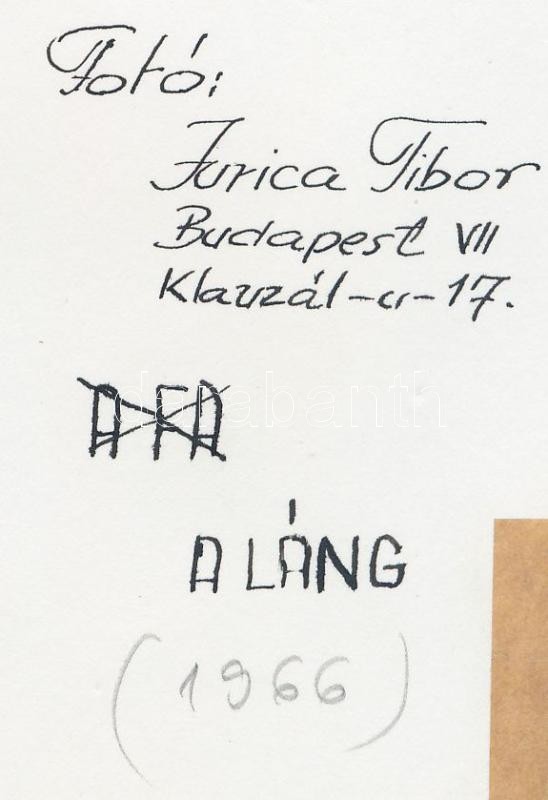 Fotó:
Jurica Tibor
Budapest VII
Klauzál-u-17.
A FA
darabanth
A LÁNG
(1966)